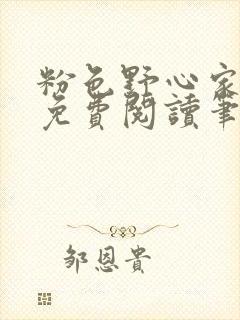 粉色野心家
免費閱讀筆
鄒恩貴